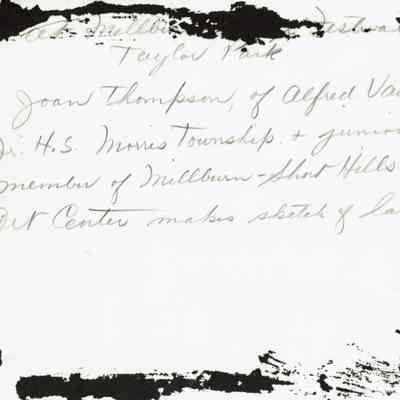 Millbu
Taylor Park
Joan Thompson, of Alfred Va
Jr. H.S. Morris Township. + junio
member of Millburn-Short Hills
Art Center makes sketch of la